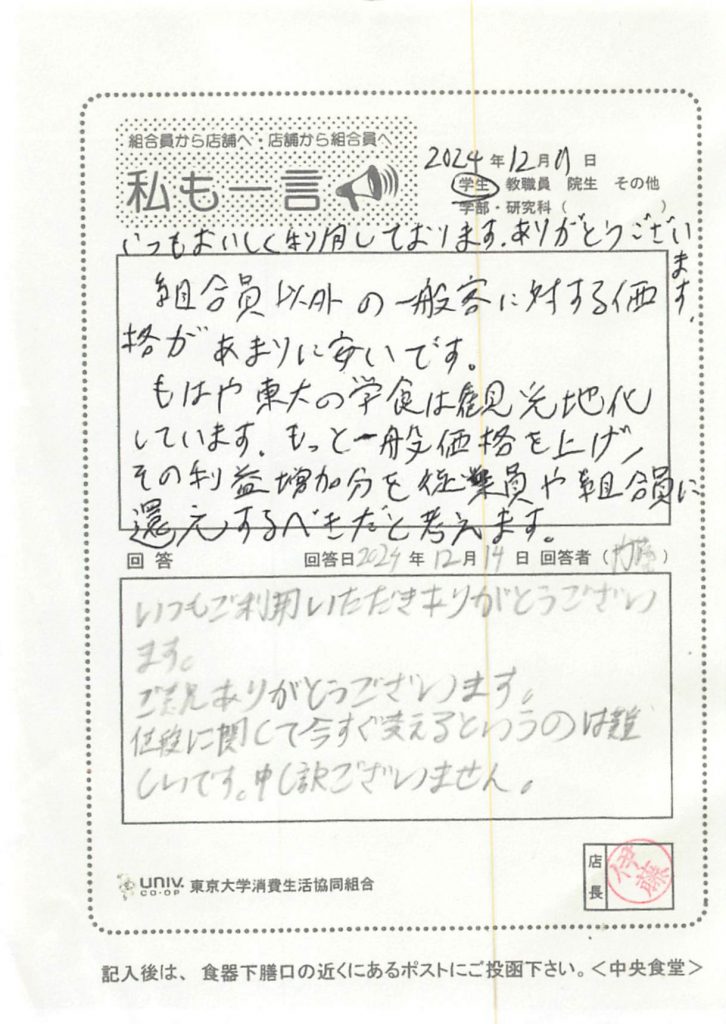 組合員から店舗へ・店舗から組合員へ
私も一言
2024年12月9日
学生 教職員 院生 その他
学部・研究科（ ）
いつもおいしく利用しております。ありがとうございます。
組合員以外の一般客に対する価
格があまりに安いです。
もはや東大の学食は観光地化
しています。もっと一般価格を上げ、
その利益増加分を従業員や組合員に
還元するべきだと考えます。
回答 回答日2024年12月14日 回答者（ ）
いつもご利用いただきありがとうござい
ます。
ご意見ありがとうございます。
値段に関して今すぐ変えるというのは難
しいです。申し訳ございません。
UNIV. CO-OP 東京大学消費生活協同組合
店長 伊藤
記入後は、食器下膳口の近くにあるポストにご投函下さい。＜中央食堂＞